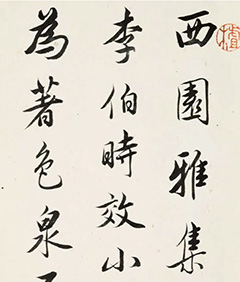 西園雅集
李伯時效小
為著色泉